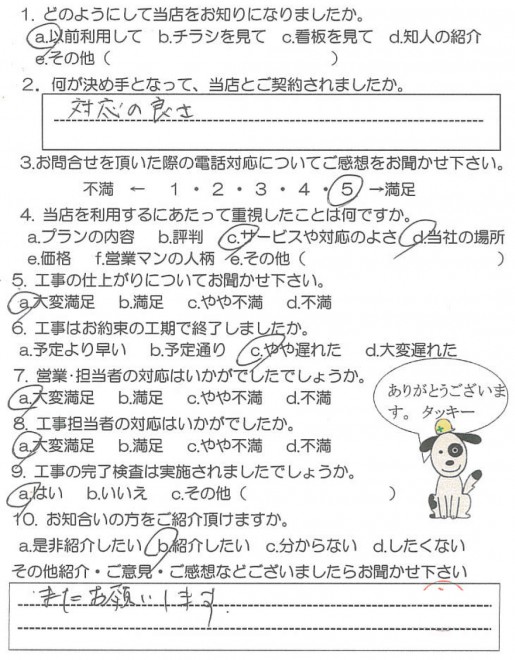 1. どのようにして当店をお知りになりましたか。
a.以前利用して b.チラシを見て c.看板を見て d.知人の紹介
e.その他（ ）
2. 何が決め手となって、当店とご契約されましたか。
対応の良さ
3.お問合せを頂いた際の電話対応についてご感想をお聞かせ下さい。
不満 ← 1・2・3・4・5 →満足
4. 当店を利用するにあたって重視したことは何ですか。
a.プランの内容 b.評判 c.サービスや対応のよさ d.当社の場所
e.価格 f.営業マンの人柄 e.その他（ ）
5. 工事の仕上がりについてお聞かせ下さい。
a.大変満足 b.満足 c.やや不満 d.不満
6. 工事はお約束の工期で終了しましたか。
a.予定より早い b.予定通り c.やや遅れた d.大変遅れた
7. 営業・担当者の対応はいかがでしたでしょうか。
a.大変満足 b.満足 c.やや不満 d.不満
ありがとうございま
す。 タッキー
8. 工事担当者の対応はいかがでしたか。
a.大変満足 b.満足 c.やや不満 d.不満
9. 工事の完了検査は実施されましたでしょうか。
a.はい b.いいえ c.その他（ ）
10. お知合いの方をご紹介頂けますか。
a.是非紹介したい b.紹介したい c.分からない d.したくない
その他紹介・ご意見・ご感想などございましたらお聞かせ下さい
またお願いします.